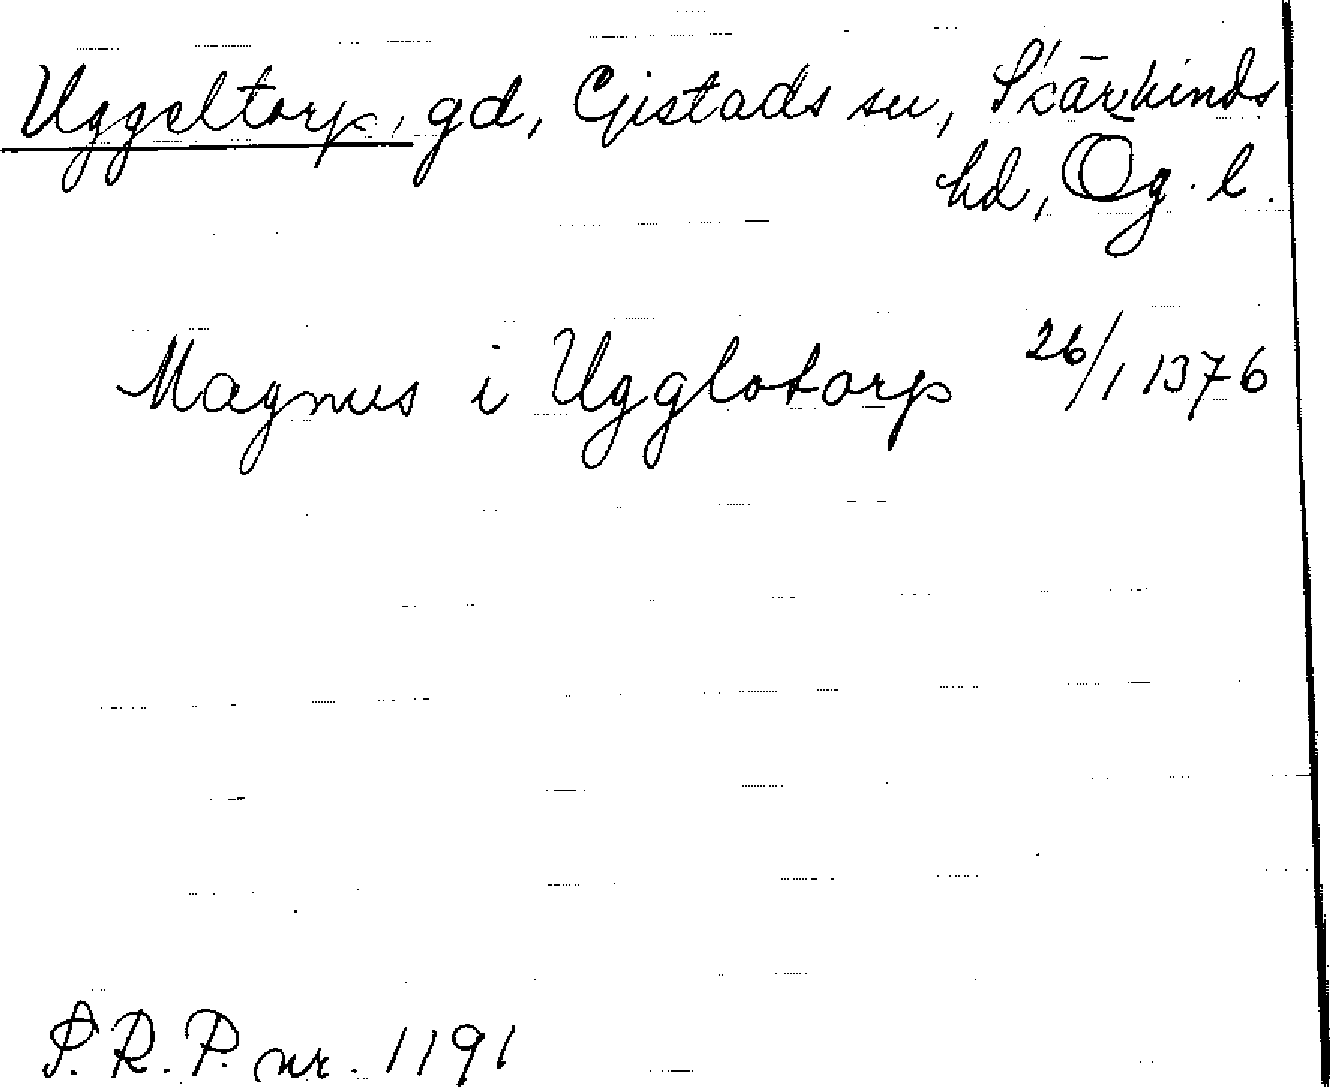 Uggeltorp, gd, Gistads sn, Skärkinds
hd, Ög. l.
Magnus i Ugglotorp 26/1 1376
S.R.P. nr. 1191